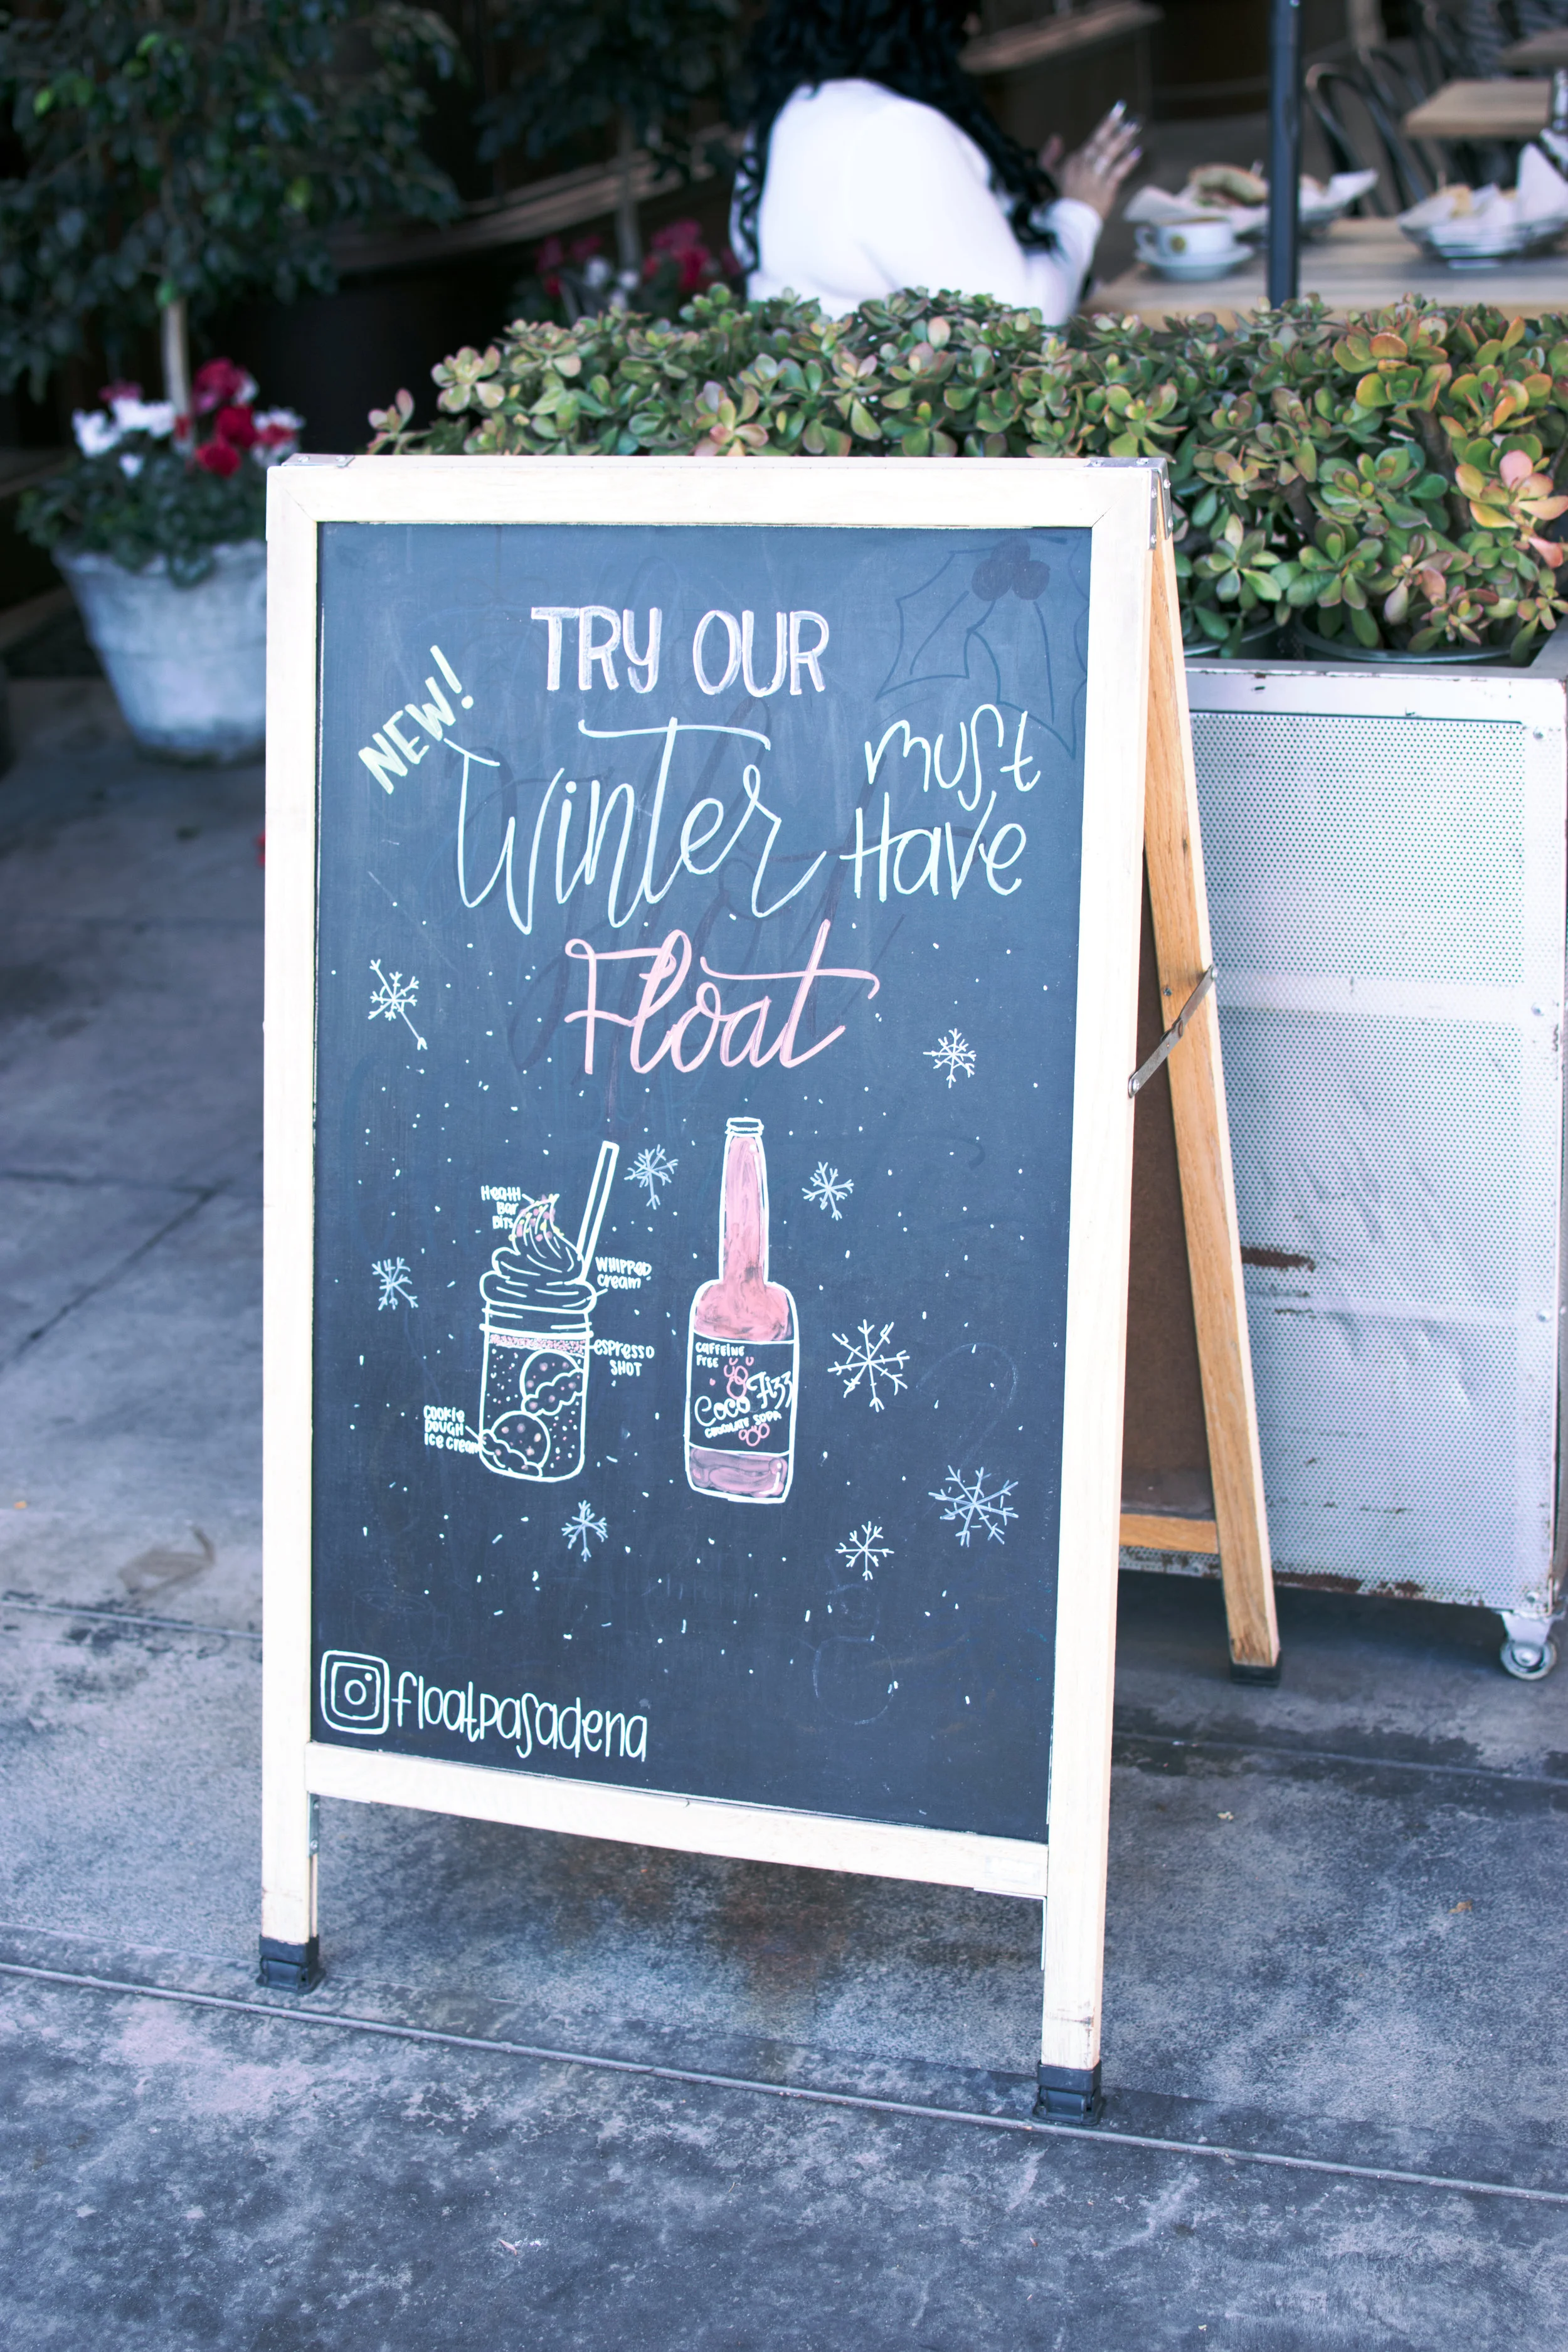 TRY OUR
NEW!
Winter
must
Have
Float
Heath
Bar
Bits
WHIPPED
cream
espresso
SHOT
COOKIE
DOUGH
Ice cream
CAFFEINE
FREE
Coco Fizz
CHOCOLATE SODA
floatpasadena